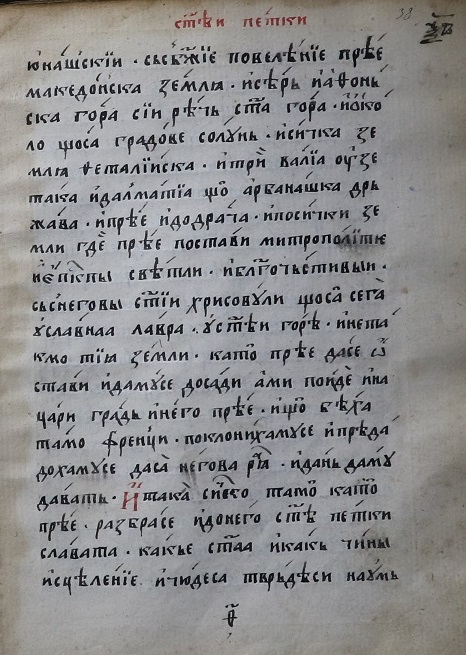 ст҃ѣи петки
38
юнашскїи · съсбж҃їе повелѣнїе прѣе
македонска землꙗ · исѣръ иаѳонь
ска гора сїи рѣчь ст҃а гора · иѡко
ло щоса градове солунь · исичка зе
млꙗ ѳеталїиска · итри валїа ѹзе
така идалматїа що арбанашка дръ
жава · ипрѣе идодрача · ипосички зе
мли гдѣ прѣе постави митрополїти
иепⷭ҇кпы свѣтли · ибл҃гочьстивыи ·
съснеговы ст҃їи хрисовули щоса сега
уславнаа лавра · уст҃ѣи горѣ · инета
кмо тїа земли · като прѣе дасе ѿ
стави идамусе досади ами поиде ина
цари градь инего прѣе · ищо бѣха
тамо френци · поклонихамусе ипреда
дохамусе даса негова рїа · идань даму
давать · И така сичко тамо като
прѣе · разбрасе идонего ст҃ѣ петки
славата · какъе ст҃аа икакъ чины
исцеленїе ичюдеса тврьдѣси наумь